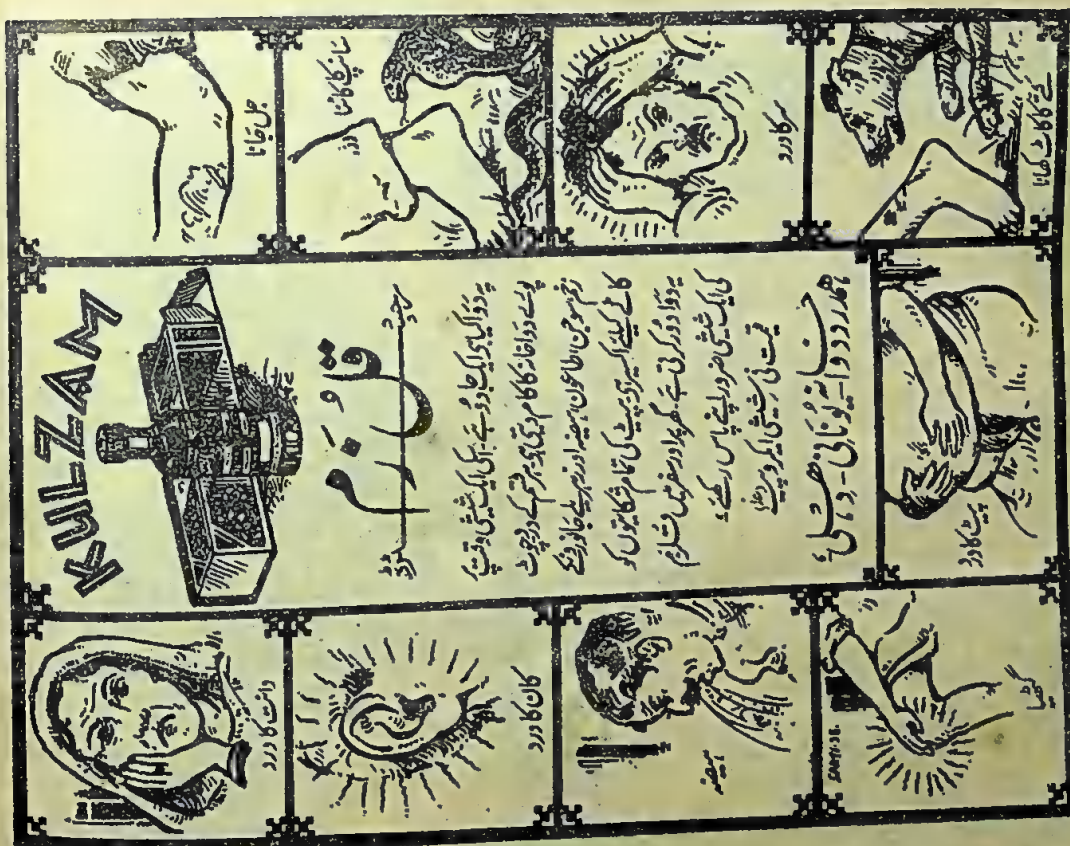 KULZAM
قلزم
رجسٹرڈ
یہ دوا کیا ہے ایک جادو ہے، اسکی ایک شیشی وقت پر
پورے دواخانہ کا کام دیتی ہے ہر قسم کے درد چوٹ
زخم سوجن، طاعون، ہیضہ اور زہریلے جانوروں کے
کاٹے کیلئے اکسیر ہے، پیٹ کی تمام شکایتوں کو
یہ دوا دور کرتی ہے گھر پر اور سفر میں قلزم
کی ایک شیشی ضرور اپنے پاس رکھئے۔
قیمت فی شیشی ایک روپیہ
ہمدرد دواخانہ یونانی - دہلی
جل جانا
سانپ کا کاٹنا
سر کا درد
کتے کا کاٹ کھانا
دانت کا درد
کان کا درد
ہیضہ
گٹھیا
پیٹ کا درد